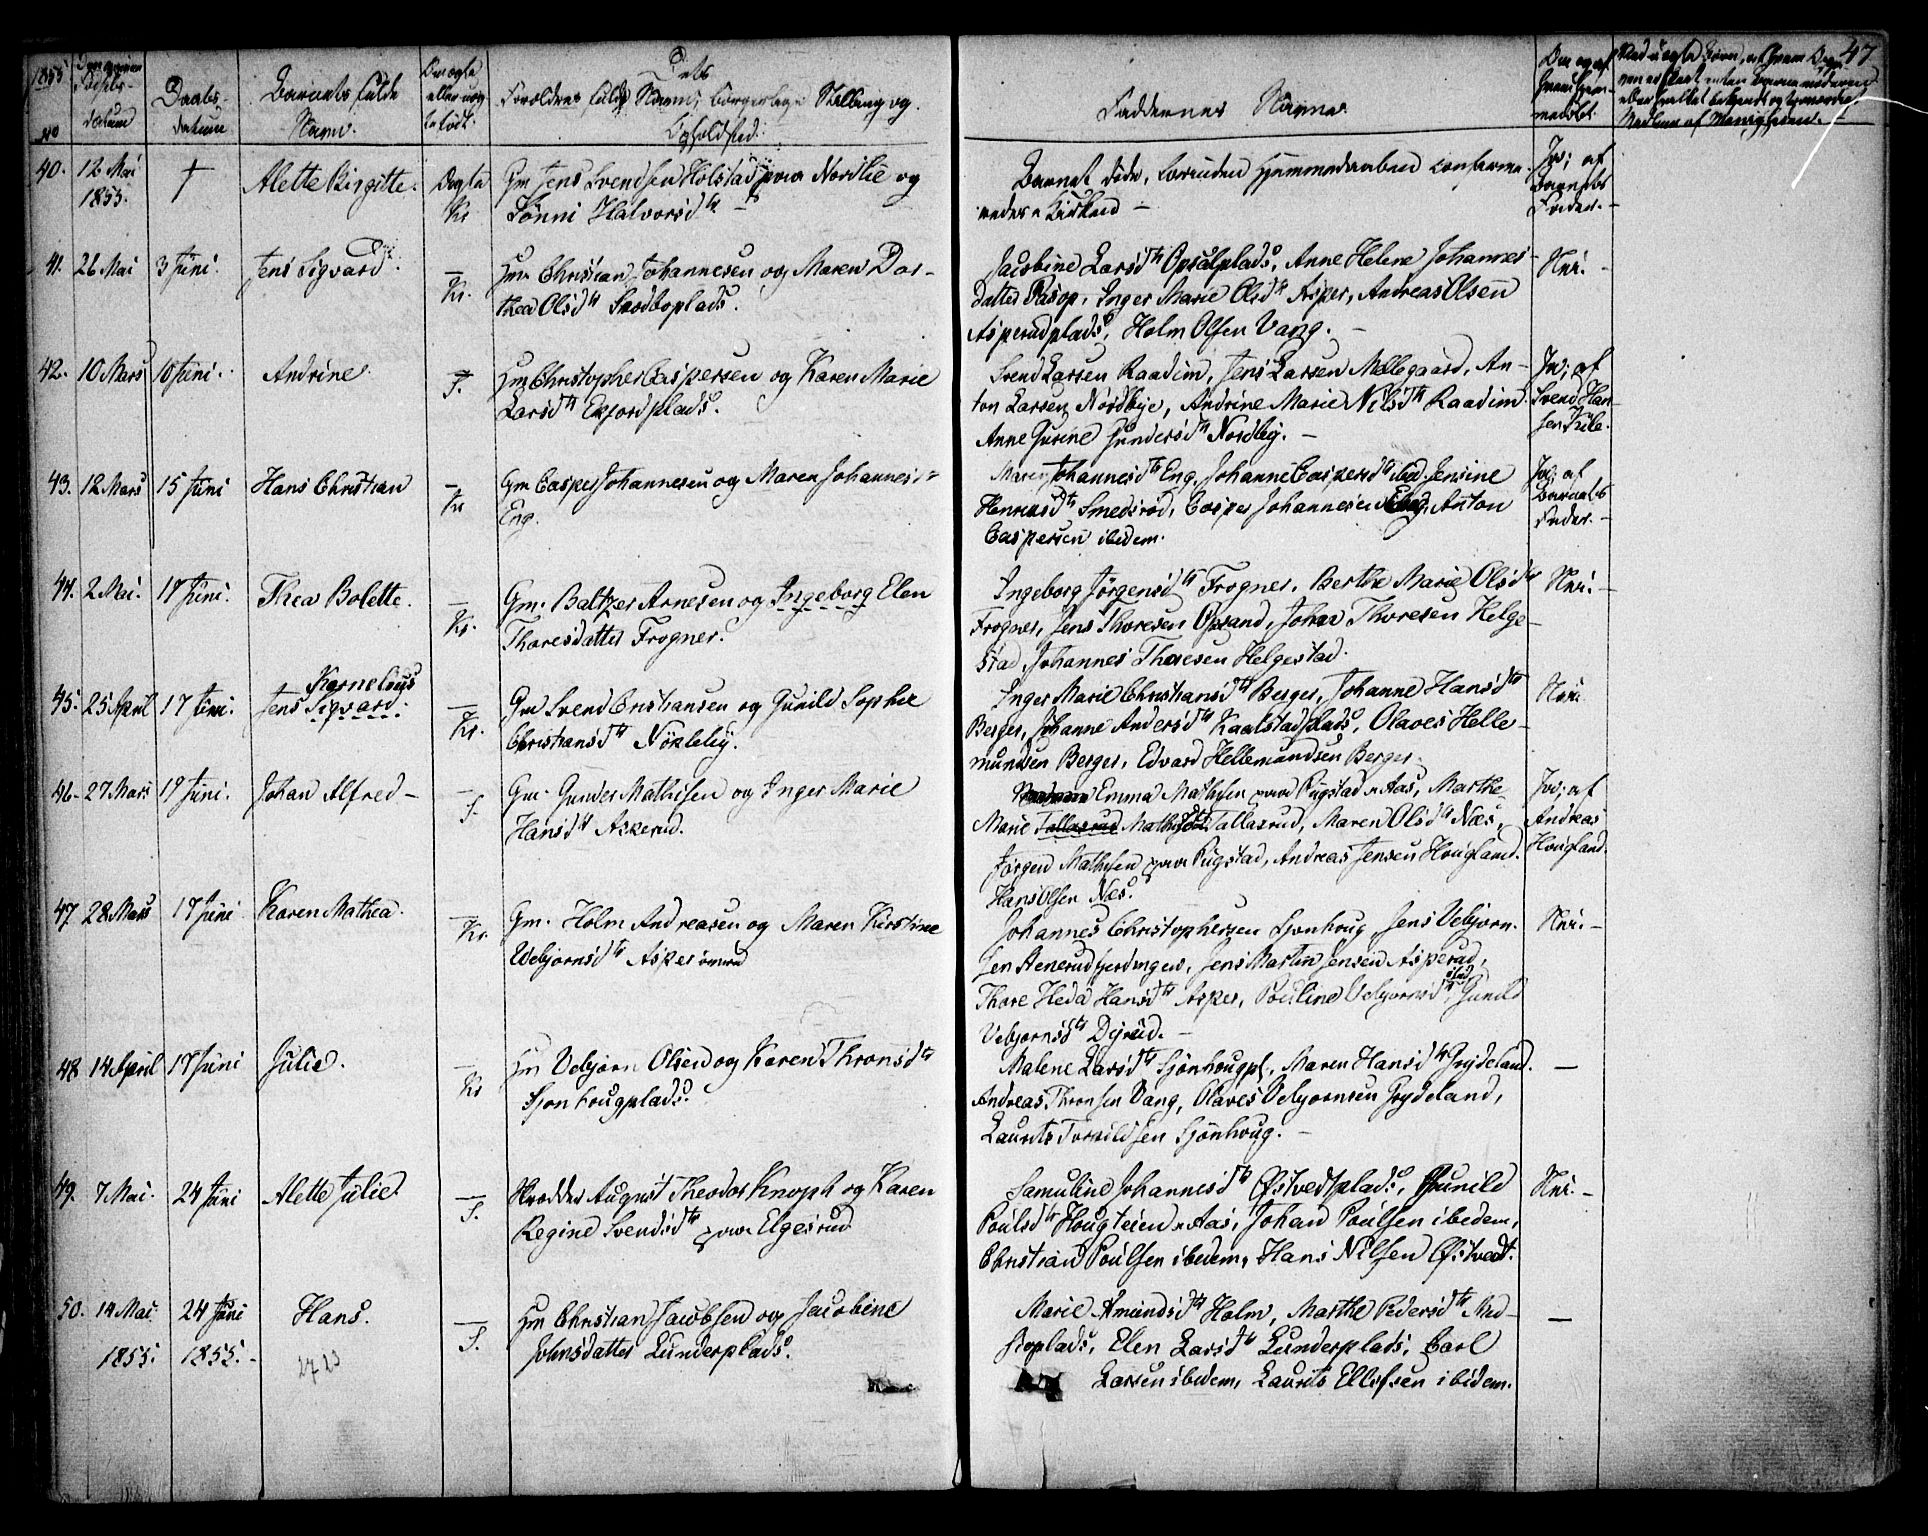 1855
No
Fødsels-
datum
Daabs-
datum
Barnets fulde
Navn.
Om ægte
eller uæg-
te født.
Dets
Forældres fulde Navne, borgerlige Stilling og
Opholdsted.
Faddernes Navne.
47
40. 12 Mai
1855.
†
Alette Birgitte.
Ægte
Kr
Gm Jens Svendsen Holstad paa Nordlie og
Lønni Halvorsdtr –
Barnet døde, forinden Hjemmedaaben
Kirken –
Ja; af
Barnets
Fader. –
41. 26 Mai 3 Juni. Jens Sigvard.
Kr.
Hm Christian Johannesen og Maren Dor-
thea Olsdtr Skodboplads.
Jacobine Larsdtr Opsalplads, Anne Helene Johannes
datter Oli, Inger Marie Olsdtr Asper, Andreas Olsen
Asperudplads, Holm Olsen Vang. –
Nei. –
42. 10 Mars 10 Juni. Andrine.
F.
Hm Christopher Caspersen og Karen Marie
Larsdtr Exfordplads.
Svend Larsen Raadim, Jens Larsen Mellegaard, An-
ton Larsen Nordbye, Andrine Marie Nilsdtr Raadim
Anne Gurine Gundersdtr Nordby. –
Ja; af
Svend Han-
sen
43. 12 Mars 15 Juni Hans Christian
Kr
Gm Casper Johannesen og Maren Johannesd-
Eng.
Maren Johannesdtr Eng, Johanne Caspersdtr ibd. Jensine
Hansdtr Smedsrød, Casper Johannesen Eng, Anton
Caspersen ibidem.
Ja; af
Barnets
Fader. –
44. 2 Mai. 17 Juni. Thea Bolette.
Kr.
Gm. Baltzer Arnesen og Ingeborg Elen
Thoresdatter Frogner.
Ingeborg Jørgensdtr Frogner, Berthe Marie Olsdtr
Frogner, Jens Thoresen Opsand, Johan Thoresen Helge-
stad, Johannes Thoresen Helgestad.
Nei. –
45. 25 April 17 Juni.
Kornelius
Jens Sigvard.
Kr.
Gm Svend Cristiansen og Gunild Sophie
Christiansdtr Nökleby.
Inger Marie Christiansdtr Berger, Johanne Hansdtr
Berger, Johanne Andersdtr Kaatstadplads, Olaves Helle-
mundsen Berger, Edvard Hellemundsen Berger.
Nei.
46. 27 Mars 17 Juni. Johan Alfred –
F.
Gm. Gunder Mathisen og Inger Marie
Hansdtr Askerud.
Emma Mathisen paa Rugstad i Aas, Marthe
Marie Tallasrud Mathisdtr Tallasrud, Maren Olsdtr Næs,
Jørgen Mathisen paa Rugstad, Andreas Jensen Hougland.
Hans Olsen Næs.
Ja; af
Andreas
Hougland.
47 28 Mars 17 Juni Karen Mathea.
Kr.
Gm. Holm Andreasen og Maren Kirstine
Vebjornsdtr Asper
Johannes Christophersen Sjonhoug, Jens Vebjorn-
sen Aenerudfjerdingen, Jens Martin Jensen Asperud,
Thore Heda Hansdtr Asper, Pouline Vebjornsdtr ibid, Gunild
Vebjornsdtr Dyrud. –
Nei. –
48 14 April 17 Juni Julie.
Kr
Hm Vebjørn Olsen og Karen Thronsdtr
Sjonhougplads.
Malene Larsdtr Sjønhougpl, Maren Hansdtr Grydeland.
Andreas Thronsen Vang, Olaves Vebjornsen Grydeland,
Laurits Torkildsen Sjönhoug. –
–
49. 7 Mai. 24 Juni Alette Julie.
F.
Skrædder August Theodor Knoph og Karen
Regine Svendsdtr paa Elgesrud
Samuline Johannesdtr Østvedtplads, Gunild
Poulsdtr Hougteien i Aas, Johan Poulsen ibidem,
Christian Poulsen ibidem, Hans Nilsen Østvedt.
Nei. –
50. 14 Mai. 24 Juni Hans.
1855. 1855. –
F.
Hm Christian Jacobsen og Jacobine
Johnsdatter Lunderplads.
Marie Amundsdtr Holm, Marthe Pedersdtr Ned-
stoplads, Elen Larsdtr Lunderplads, Carl
Larsen ibidem, Laurits Ellefsen ibidem.
–